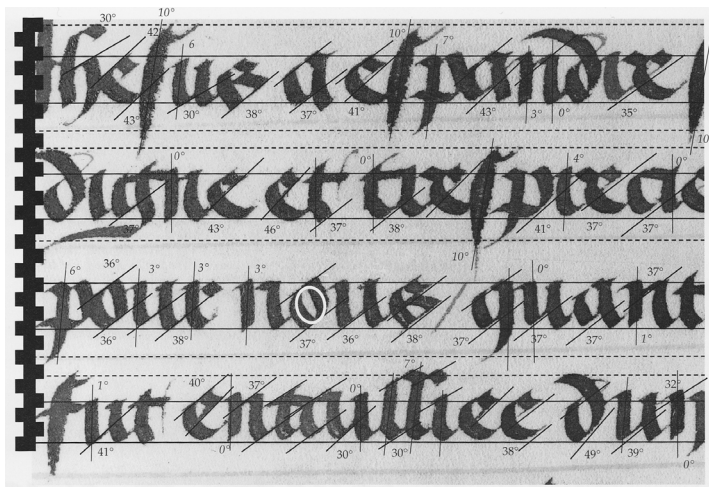 30° 42 10° 6 10° 7°
Jhesus a espandre
43° 30° 38° 37° 41° 43° 3° 0° 35° 10
0° 0° 4° 0°
digne et trespercie
37° 43° 46° 37° 38° 10° 41° 37° 37°
6° 36° 3° 3° 3° 0° 37°
pour nous quant
36° 38° 37° 36° 38° 37° 37° 37° 1°
1° 40° 37° 0° 7° 32°
fut entaulliee dun
41° 0° 30° 30° 38° 49° 39° 0°